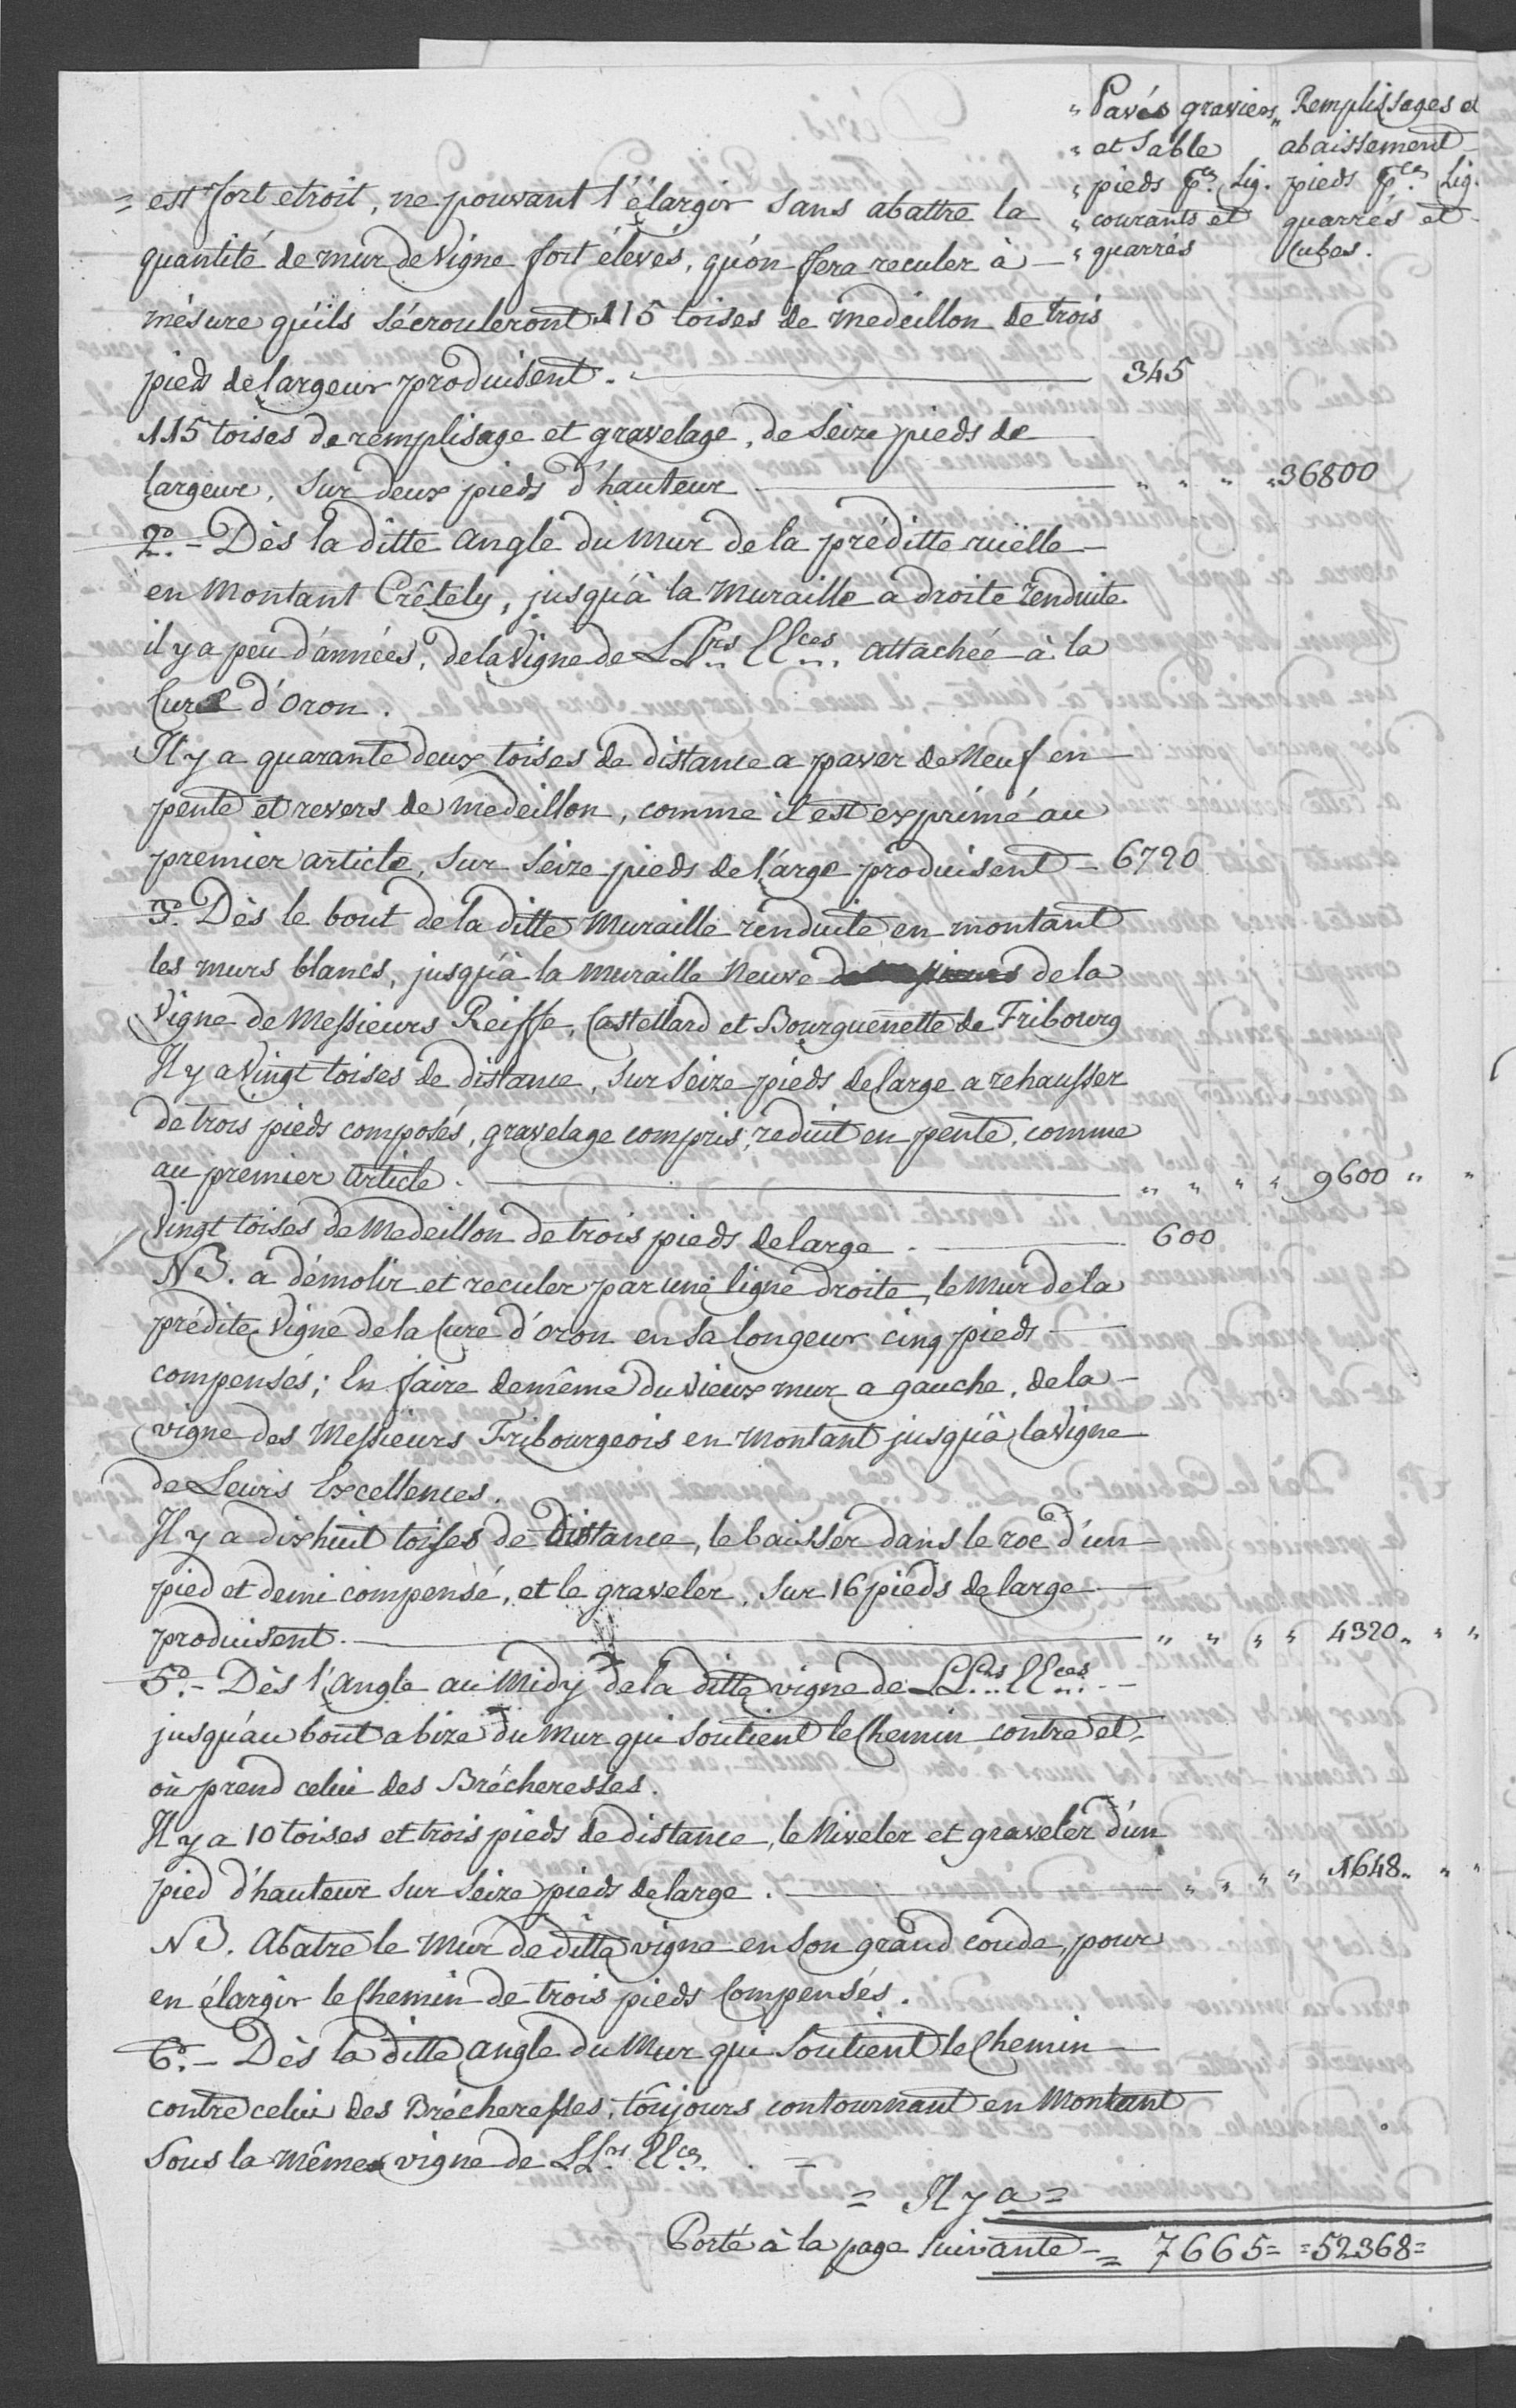 " Pavés graviers " Remplissages et
" et Sable abaissement
" pieds pces. Lig. pieds pces. Lig.
" courants et quarrés et
" quarrés Cubes.
= est fort etroit, ne pouvant l'élargir sans abattre la
quantité de mur de Vigne fort élevés, qu'on fera reculer à
mésure qu'ils sécrouleront 115 toises de medeillon de trois
pieds de largeur produisent. — 345
115 toises de remplisage et gravelage, de Seize pieds de
largeur, sur deux pieds d'hauteur — " " " " 36800
2°. – Dès la ditte Angle du Mur de la préditte ruëlle
en Montant Crêtely, jusqu'à la Muraille a droite renduite
il y a peu d'années, de la Vigne de LLrs EEces. attachée à la
Cure d'Oron.
Il y a quarante deux toises de distance a paver de Neuf en
pente et revers de medeillon, comme il est exprimé au
premier article, sur Seize pieds de l'arge produisent – 6720
3°. Dès le bout de la ditte Muraille renduite en montant
les murs blancs, jusqu'à la Muraille Neuve de la
Vigne de Messieurs Reiffe, Castellard et Bourguenette de Fribourg
Il y a Vingt toises de distance, sur Seize pieds de large a rehausser
de trois pieds composés, gravelage compris, reduit en pente, comme
au premier Article. — " " " " 9600 " "
Vingt toises de Medeillon de trois pieds de large. — 600
NB. à démolir et reculer par une ligne droite, le Mur de la
prédite Vigne de la Cure d'Oron en sa longeur cinq pieds
compensés; En faire de même du Vieux mur a gauche, de la
vigne des Messieurs Fribourgeois en Montant jusqu'à la Vigne
de Leurs Excellences.
Il y a dixhuit toises de distance, le baisser dans le roc d'un
pied et demi compensé, et le graveler, sur 16 pieds de large
produisent. — " " " " 4320 " " "
5°. – Dès l'Angle au Midy de la ditte vigne de LLrs EEces.
jusqu'au bout a bize du Mur qui soutient le Chemin contre et
où prend celui des Brécheresses.
Il y a 10 toises et trois pieds de distance, le Niveler et graveler d'un
pied d'hauteur sur Seize pieds de large. — " " " " 1648 " " "
NB. Abatre le Mur de ditte vigne en son grand coude, pour
en élargir le Chemin de trois pieds Compensés.
6°. – Dès la ditte angle du Mur qui soutient le Chemin
contre celui des Brécheresses, toujours contournant en Montant
Sous la même vigne de LLrs EEces. =
= Il y a =
Porté à la page suivante = 7665 = = 52368 =